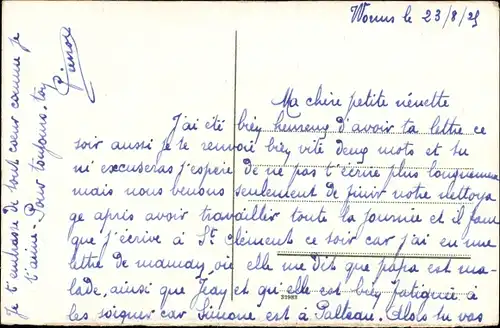 Worms le 23/8/25
Ma chère petite nénette
J'ai été bien heureux d'avoir ta lettre ce
soir aussi je te renvoie bien vite deux mots et tu
m'excuseras j'espère de ne pas t'écrire plus longuement
mais nous venons seulement de finir notre nettoya
ge après avoir travailler toute la journée et il faut
que j'écrive à St Clément ce soir car j'ai eu une
lettre de maman, où elle me dit que papa est ma-
lade, ainsi que Jean et qu'elle est bien fatiguée à
les soigner car Simone est à Palteau. Alors tu vas
31983
Je t'embrasse de tout cœur comme je
t'aime - Pour toujours. ton
Pierrot